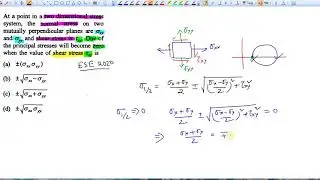 At a point in a two dimensional stress
system, the normal stress on two
mutually perpendicular planes are σxx
and σyy and shear stress is σxy. One of
the principal stresses will become zero
when the value of shear stress σxy is
(a) ±(σxx σyy)
(b) ±√σxx−σyy
(c) ±√σxx+σyy
(d) ±√σxx σyy
ESE 2020
σ1/2 = σx+σy/2 ± √(σx−σy/2)²+τxy²
σ1/2 ⇒ 0 σx+σy/2 ± √(σx−σy/2)²+τxy² = 0
⇒ σx+σy/2 = ∓